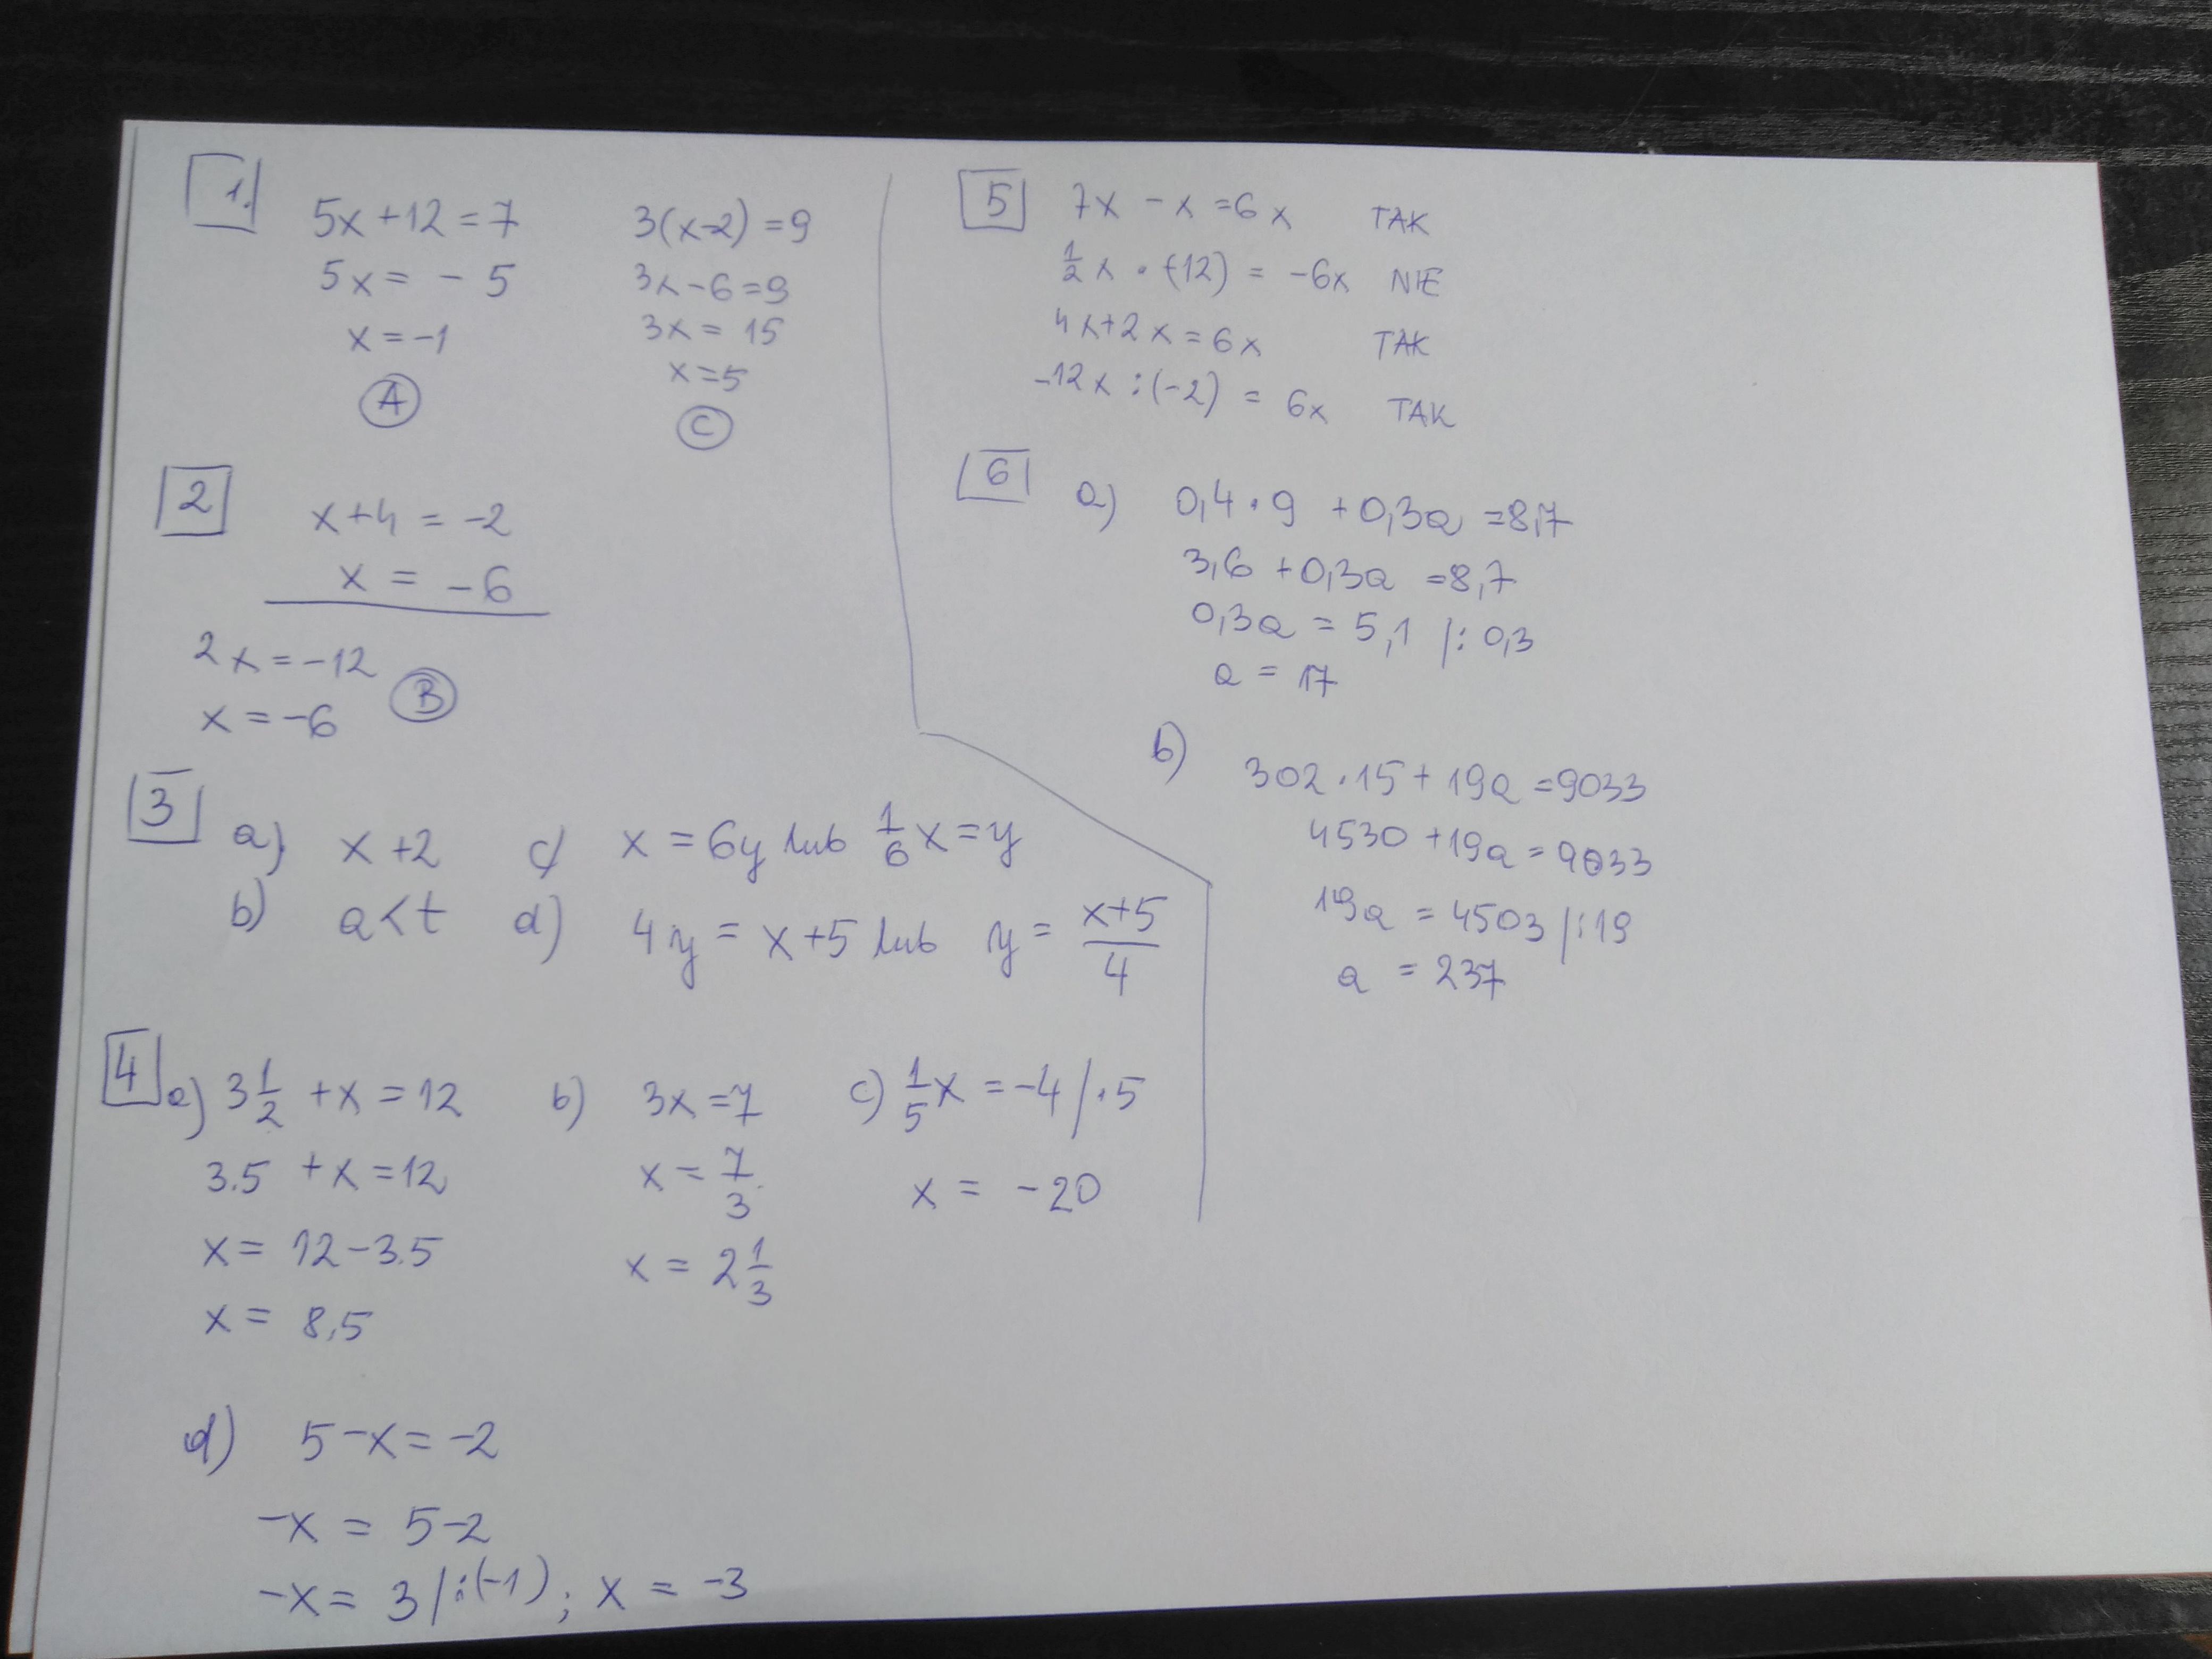 1.
5x+12=7
5x= -5
x=-1
A
3(x-2)=9
3x-6=9
3x= 15
x=5
C
2
x+4 = -2
x = -6
2x=-12
x=-6
B
3
a) x+2
b) a<t
c) x=6y lub 1/6x=y
d) 4y= x+5 lub y= (x+5)/4
4
a) 3 1/2 +x=12
3.5 +x=12
x= 12-3.5
x= 8,5
b) 3x=7
x= 7/3
x= 2 1/3
c) 1/5x =-4/·5
x= -20
d) 5-x=-2
-x= 5-2
-x= 3/:(-1); x= -3
5
7x -x=6x TAK
1/2x · (-12) = -6x NIE
4x+2x=6x TAK
-12x:(-2) = 6x TAK
6
a) 0,4·9 +0,3a =8,7
3,6 +0,3a =8,7
0,3a = 5,1 /: 0,3
a = 17
b) 302·15+19a=9033
4530 +19a=9033
19a = 4503 /:19
a = 237